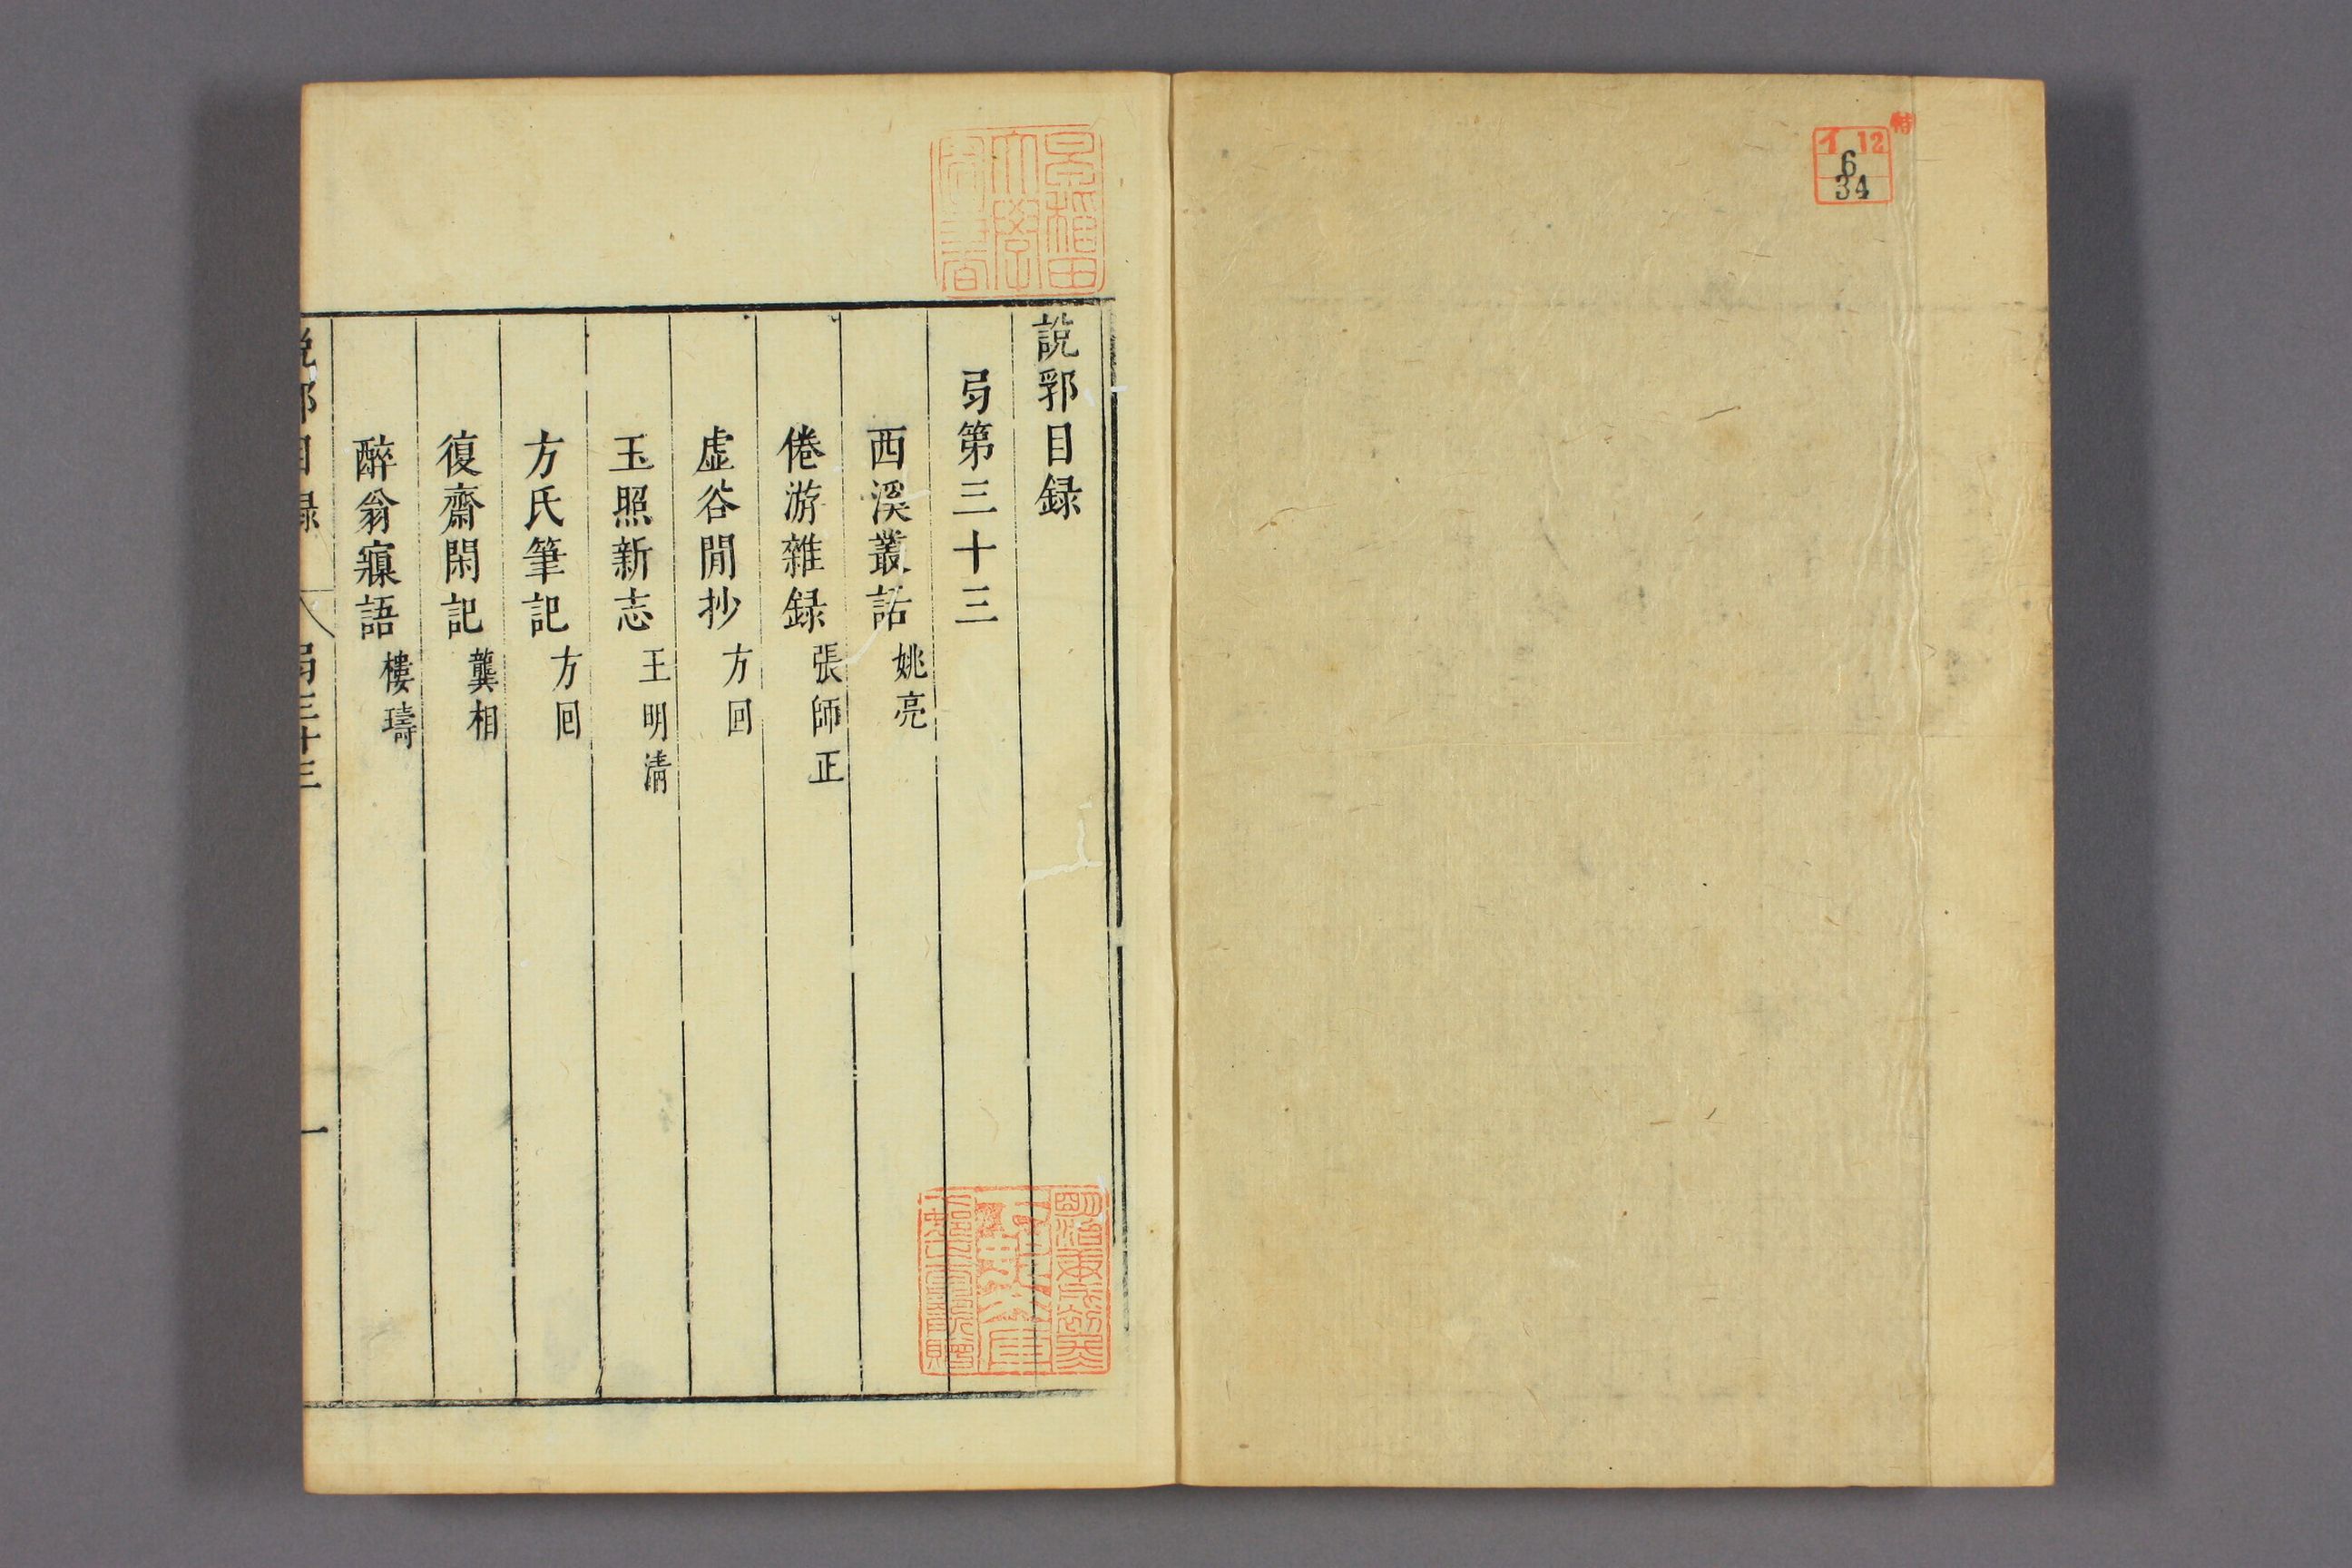 特
イ 12
6
34
早稲田
大學
圖書
說郛目録
弓第三十三
西溪叢話 姚亮
倦游雜録 張師正
虛谷閒抄 方回
玉照新志 王明清
方氏筆記 方回
復齋閑記 龔相
醉翁寱語 樓璹
說郛目録 弓三十三 一